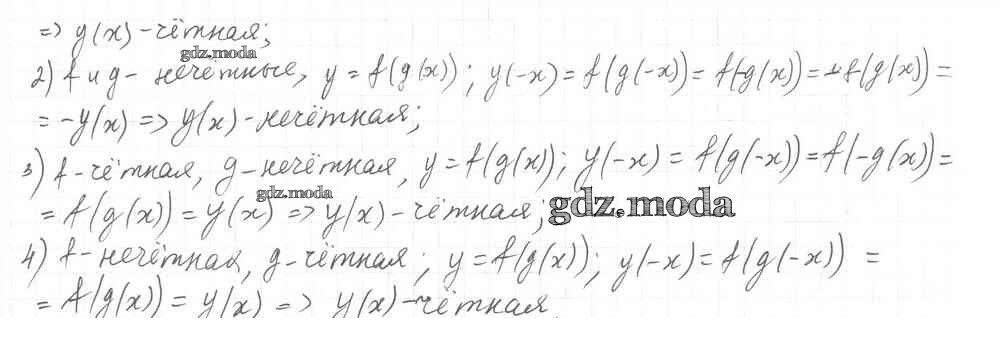 => y(x) - чётная;
gdz.moda
2) f и g - нечётные, y = f(g(x)); y(-x) = f(g(-x)) = f(-g(x)) = -f(g(x)) =
= -y(x) => y(x) - нечётная;
3) f - чётная, g - нечётная, y = f(g(x)); y(-x) = f(g(-x)) = f(-g(x)) =
gdz.moda
= f(g(x)) = y(x) => y(x) - чётная; gdz.moda
4) f - нечётная, g - чётная; y = f(g(x)); y(-x) = f(g(-x)) =
= f(g(x)) = y(x) => y(x) - чётная.